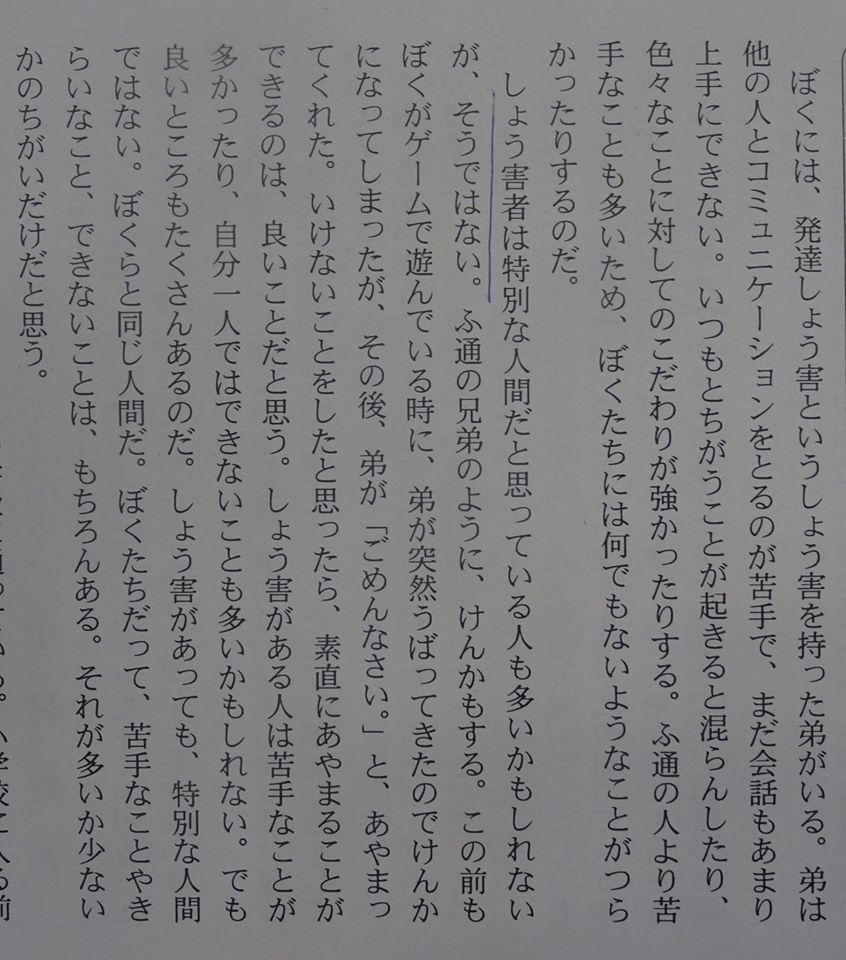 ぼくには、発達しょう害というしょう害を持った弟がいる。弟は
他の人とコミュニケーションをとるのが苦手で、まだ会話もあまり
上手にできない。いつもとちがうことが起きると混らんしたり、
色々なことに対してのこだわりが強かったりする。ふ通の人より苦
手なことも多いため、ぼくたちには何でもないようなことがつら
かったりするのだ。
しょう害者は特別な人間だと思っている人も多いかもしれない
が、そうではない。ふ通の兄弟のように、けんかもする。この前も
ぼくがゲームで遊んでいる時に、弟が突然うばってきたのでけんか
になってしまったが、その後、弟が「ごめんなさい。」と、あやまっ
てくれた。いけないことをしたと思ったら、素直にあやまることが
できるのは、良いことだと思う。しょう害がある人は苦手なことが
多かったり、自分一人ではできないことも多いかもしれない。でも
良いところもたくさんあるのだ。しょう害があっても、特別な人間
ではない。ぼくらと同じ人間だ。ぼくたちだって、苦手なことやき
らいなこと、できないことは、もちろんある。それが多いか少ない
かのちがいだけだと思う。
通っている。小学校に入る前